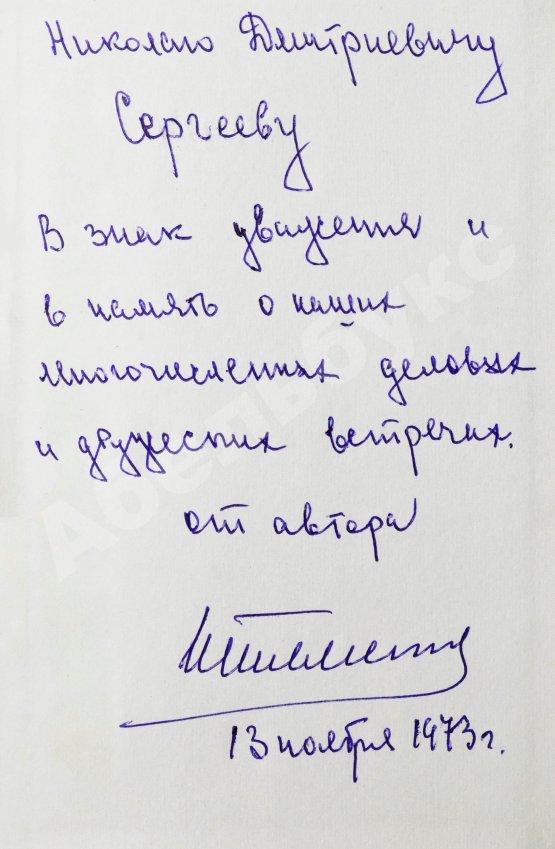 Николаю Дмитриевичу
Сергееву
В знак уважения и
в память о наших
многочисленных деловых
и дружеских встречах.
от автора
13 ноября 1973 г.
Абельбукс